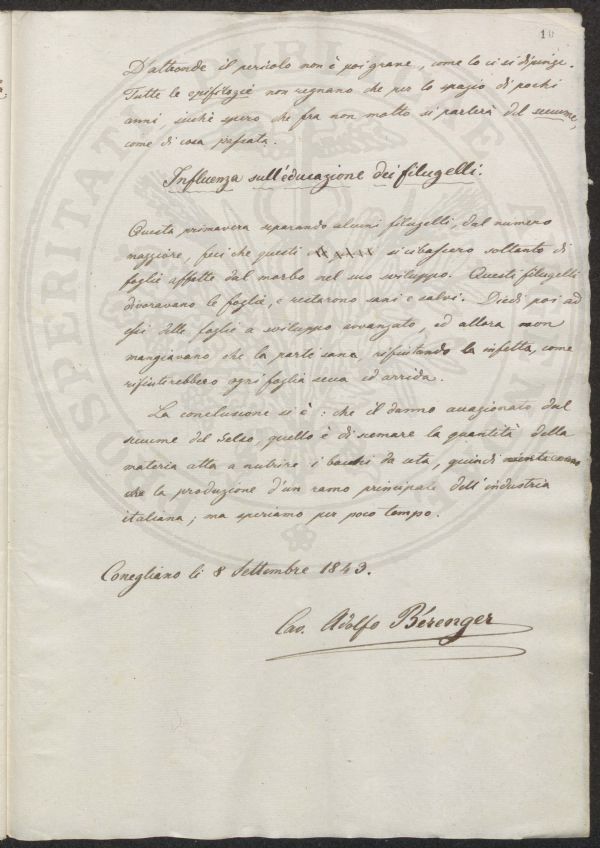 10
D'altronde il pericolo non è poi grave, come lo ci si dipinge.
Tutte le epifitozie non regnano che per lo spazio di pochi
anni sicchè spero che fra non molto si parlerà del seccume,
come di cosa passata.
Influenza sull'educazione dei filugelli.
Questa primavera separando alcuni filugelli, dal numero
maggiore, feci che questi si cibassero soltanto di
foglie affette dal morbo nel suo sviluppo. Questi filugelli
divoravano le foglie, e restarono sani e salvi. Diedi poi ad
essi delle foglie a sviluppo avvanzato, ed allora non
mangiavano che la parte sana, rifiutando la infetta, come
rifiuterebbero ogni foglia secca ed arrida.
La conclusione si è: che il danno accagionato dal
seccume del Gelso, quello è di scemare la quantità della
materia atta a nutrire i bachi da seta, quindi
la produzione d'un ramo principale dell'industria
italiana; ma speriamo per poco tempo.
Conegliano li 8 Settembre 1843.
Cav. Adolfo Bérenger